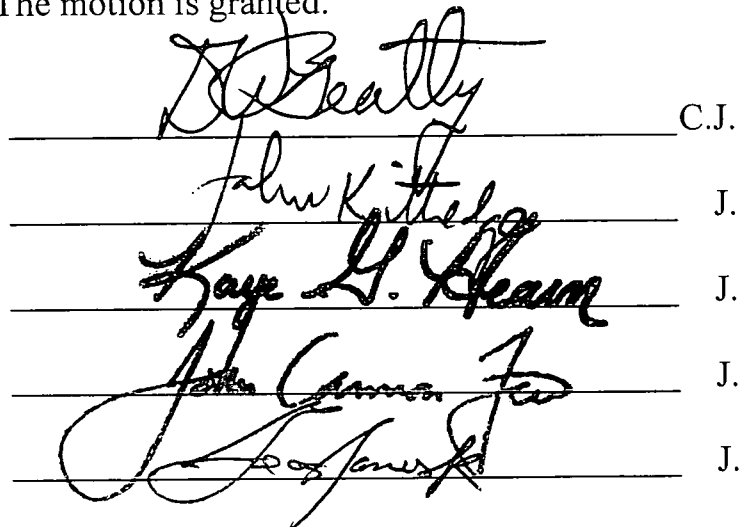 The motion is granted.
D W Beatty C.J.
John Kittredge J.
Kaye G. Hearn J.
John Cannon Few J.
J.